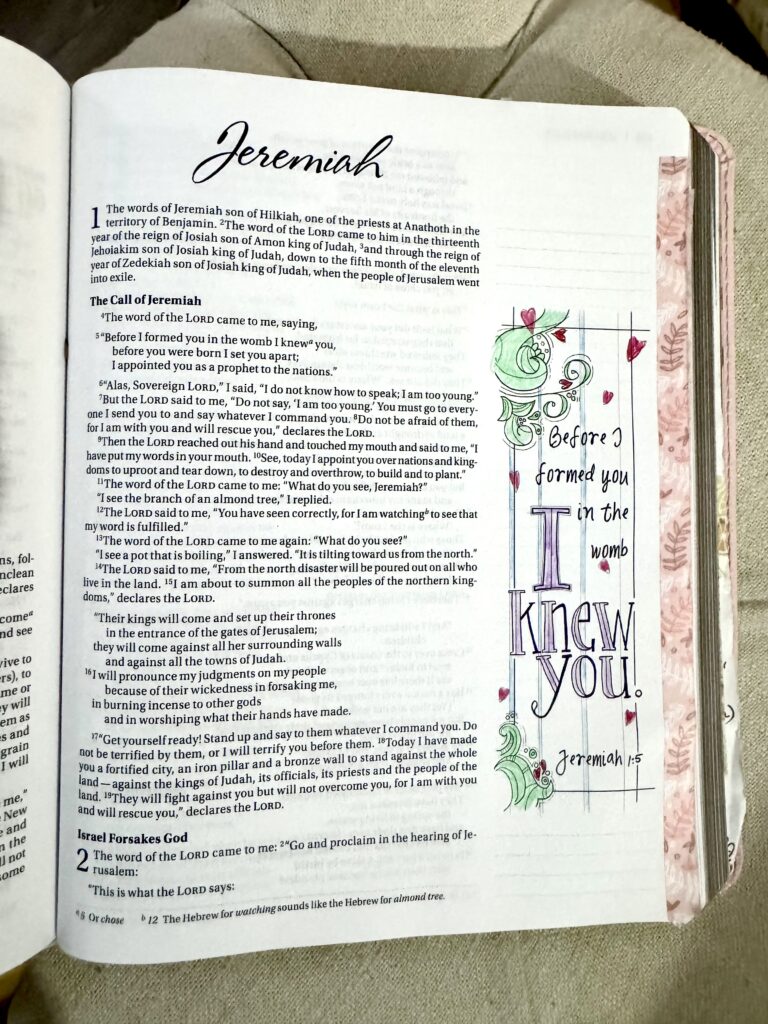 ns, fol-
nclean
eclares
comeᵃ
nd see
vive to
rs), to
me or
ey will
em as
s and
grain
I will
me,"
New
e and
n the
ll not
some
Jeremiah
1 The words of Jeremiah son of Hilkiah, one of the priests at Anathoth in the
territory of Benjamin. ²The word of the LORD came to him in the thirteenth
year of the reign of Josiah son of Amon king of Judah, ³and through the reign of
Jehoiakim son of Josiah king of Judah, down to the fifth month of the eleventh
year of Zedekiah son of Josiah king of Judah, when the people of Jerusalem went
into exile.
The Call of Jeremiah
⁴The word of the LORD came to me, saying,
⁵"Before I formed you in the womb I knewᵃ you,
before you were born I set you apart;
I appointed you as a prophet to the nations."
⁶"Alas, Sovereign LORD," I said, "I do not know how to speak; I am too young."
⁷But the LORD said to me, "Do not say, 'I am too young.' You must go to every-
one I send you to and say whatever I command you. ⁸Do not be afraid of them,
for I am with you and will rescue you," declares the LORD.
⁹Then the LORD reached out his hand and touched my mouth and said to me, "I
have put my words in your mouth. ¹⁰See, today I appoint you over nations and king-
doms to uproot and tear down, to destroy and overthrow, to build and to plant."
¹¹The word of the LORD came to me: "What do you see, Jeremiah?"
"I see the branch of an almond tree," I replied.
¹²The LORD said to me, "You have seen correctly, for I am watchingᵇ to see that
my word is fulfilled."
¹³The word of the LORD came to me again: "What do you see?"
"I see a pot that is boiling," I answered. "It is tilting toward us from the north."
¹⁴The LORD said to me, "From the north disaster will be poured out on all who
live in the land. ¹⁵I am about to summon all the peoples of the northern king-
doms," declares the LORD.
"Their kings will come and set up their thrones
in the entrance of the gates of Jerusalem;
they will come against all her surrounding walls
and against all the towns of Judah.
¹⁶I will pronounce my judgments on my people
because of their wickedness in forsaking me,
in burning incense to other gods
and in worshiping what their hands have made.
¹⁷"Get yourself ready! Stand up and say to them whatever I command you. Do
not be terrified by them, or I will terrify you before them. ¹⁸Today I have made
you a fortified city, an iron pillar and a bronze wall to stand against the whole
land — against the kings of Judah, its officials, its priests and the people of the
land. ¹⁹They will fight against you but will not overcome you, for I am with you
and will rescue you," declares the LORD.
Israel Forsakes God
2 The word of the LORD came to me: ²"Go and proclaim in the hearing of Je-
rusalem:
"This is what the LORD says:
ᵃ 5 Or chose ᵇ 12 The Hebrew for watching sounds like the Hebrew for almond tree.
Before I
formed you
in the
womb
I
knew
you.
Jeremiah 1:5